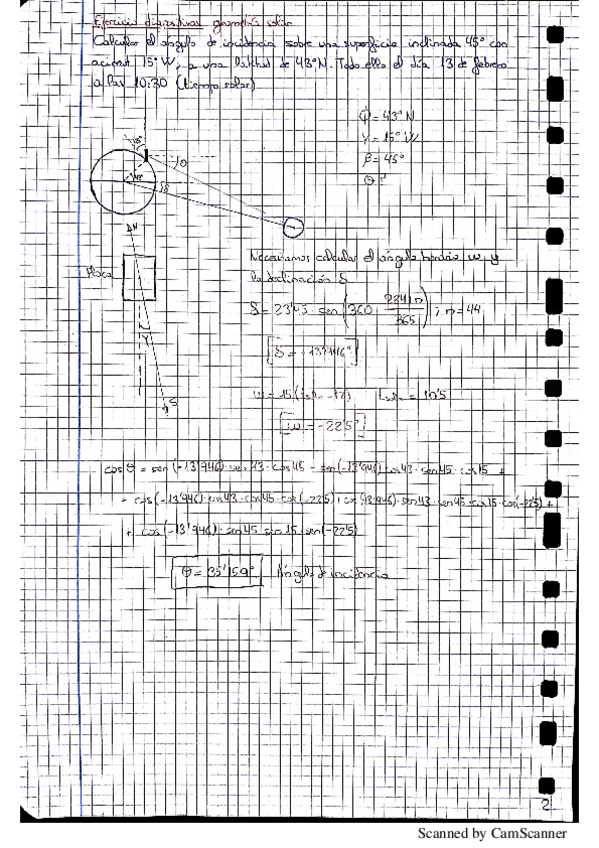 Ejercicio diapositivas geometría solar
Calcular el ángulo de incidencia sobre una superficie inclinada 45° con
acimut 15° W, a una latitud de 43°N. Todo ello el día 13 de febrero
a las 10:30 (tiempo solar)
φ = 43° N
γ = 15° W
β = 45°
θ ?
N
Placa
γ
S
Necesitamos calcular el ángulo horario w y
la declinación δ
δ = 23'45 · sen (360 · 284+n / 365) ; n = 44
δ = -13'946°
w = 15 ( -12) = 10'5
w = -22'5°
cos θ = sen (-13'946) · sen 43 · cos 45 - sen (-13'946) cos 43 · sen 45 · cos 15 +
+ cos (-13'946) · cos 43 · cos 45 · cos (-22'5) + cos (-13'946) · sen 43 · sen 45 · cos 15 · cos (-22'5) +
+ cos (-13'946) · sen 45 · sen 15 · sen (-22'5)
θ = 35'159° Ángulo de incidencia
2
Scanned by CamScanner